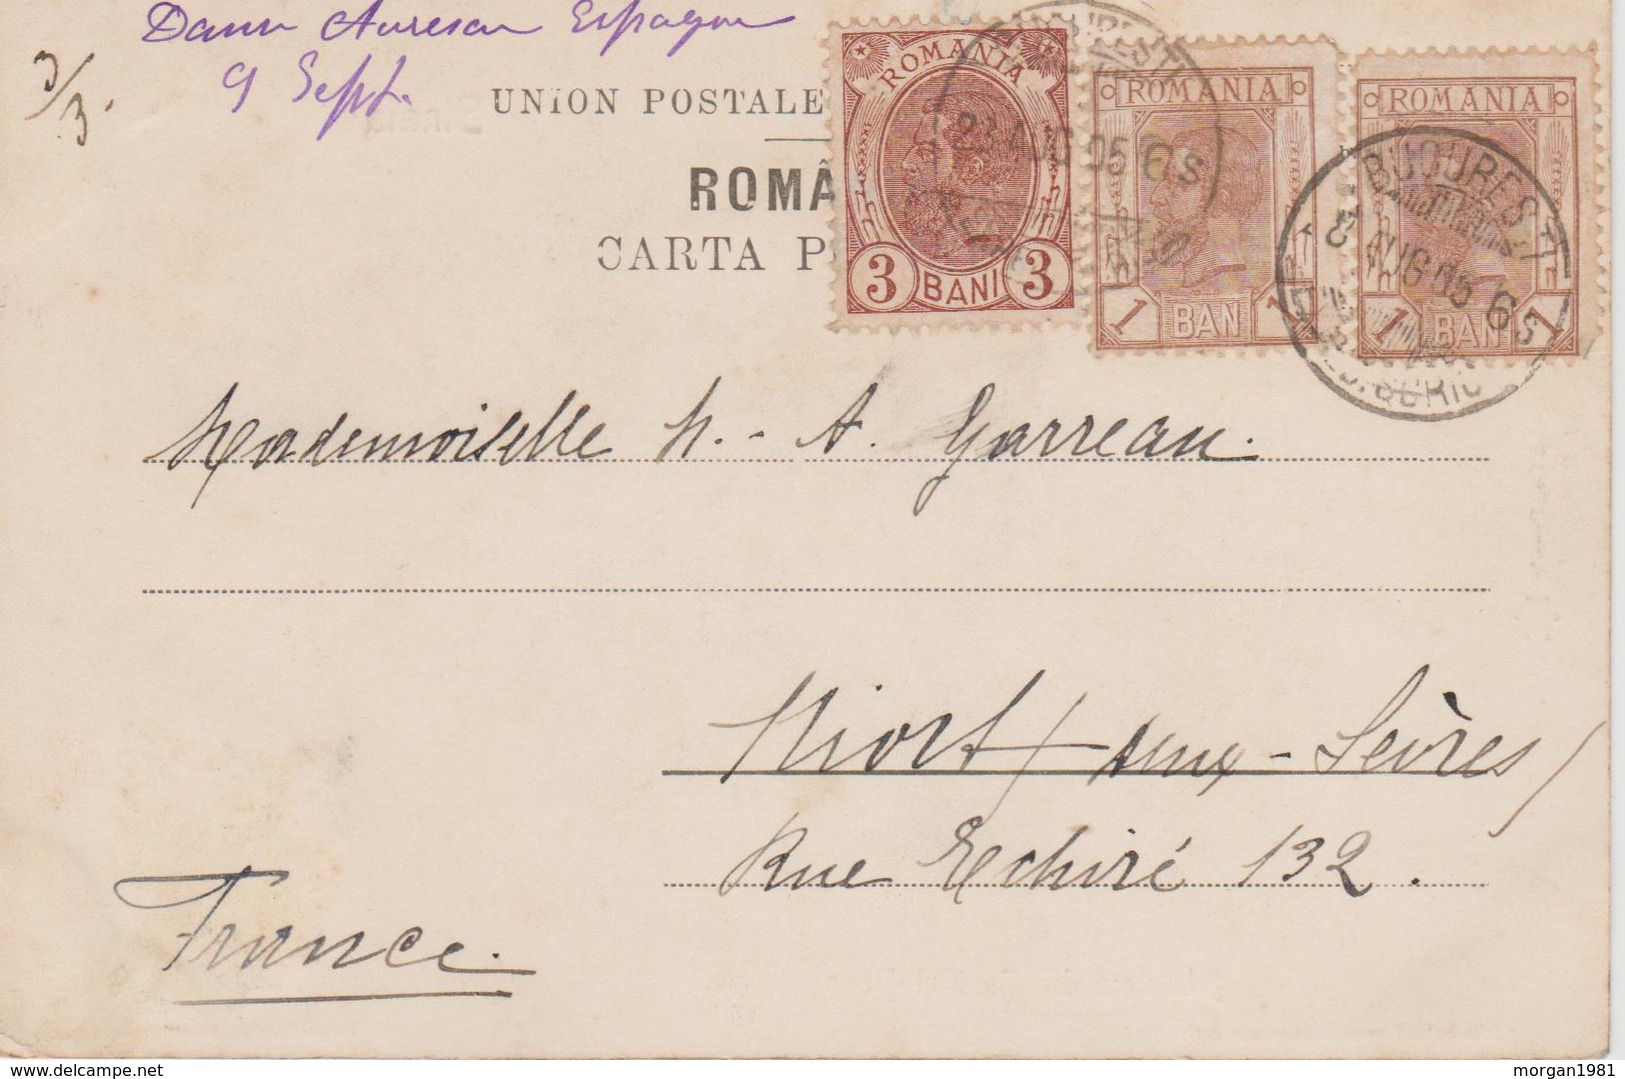 9 Sept.
3/3.
UNION POSTALE
ROMÂ
CARTA P
ROMANIA
3 BANI 3
ROMANIA
1 BAN 1
ROMANIA
1 BAN 1
BUCUREST
AUG 05
BUCURESTI
AUG 05
Mademoiselle M.-A. Garreau.
Niort (Deux-Sèvres)
Rue Echiré 132.
France.
www.delcampe.net
morgan1981